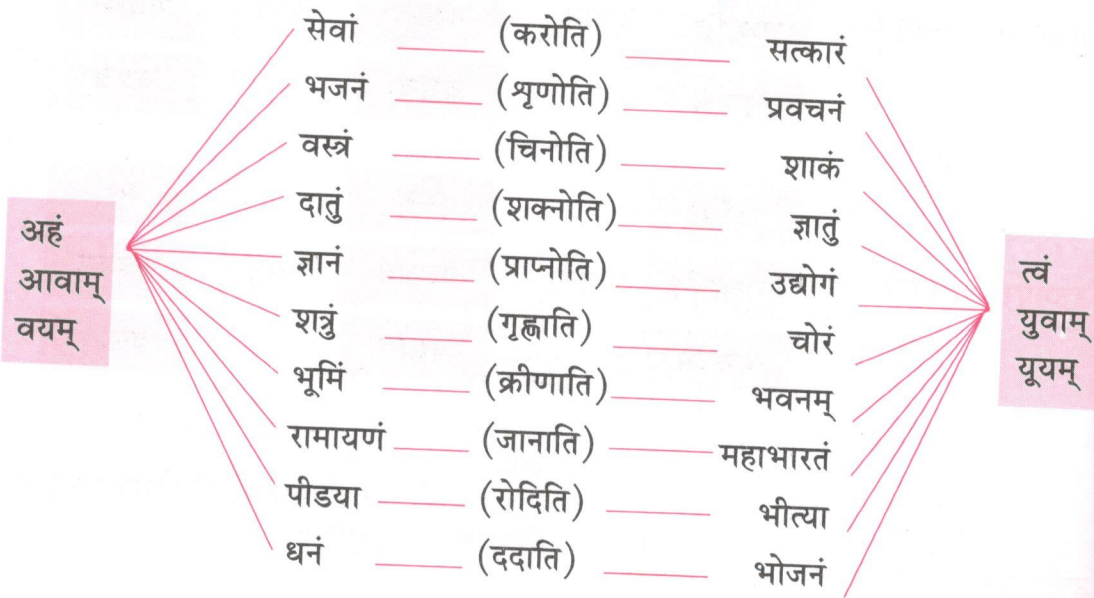 सेवां (करोति) सत्कारं
भजनं (शृणोति) प्रवचनं
वस्त्रं (चिनोति) शाकं
दातुं (शक्नोति) ज्ञातुं
ज्ञानं (प्राप्नोति) उद्योगं
शत्रुं (गृह्णाति) चोरं
भूमिं (क्रीणाति) भवनम्
रामायणं (जानाति) महाभारतं
पीडया (रोदिति) भीत्या
धनं (ददाति) भोजनं
अहं
आवाम्
वयम्
त्वं
युवाम्
यूयम्